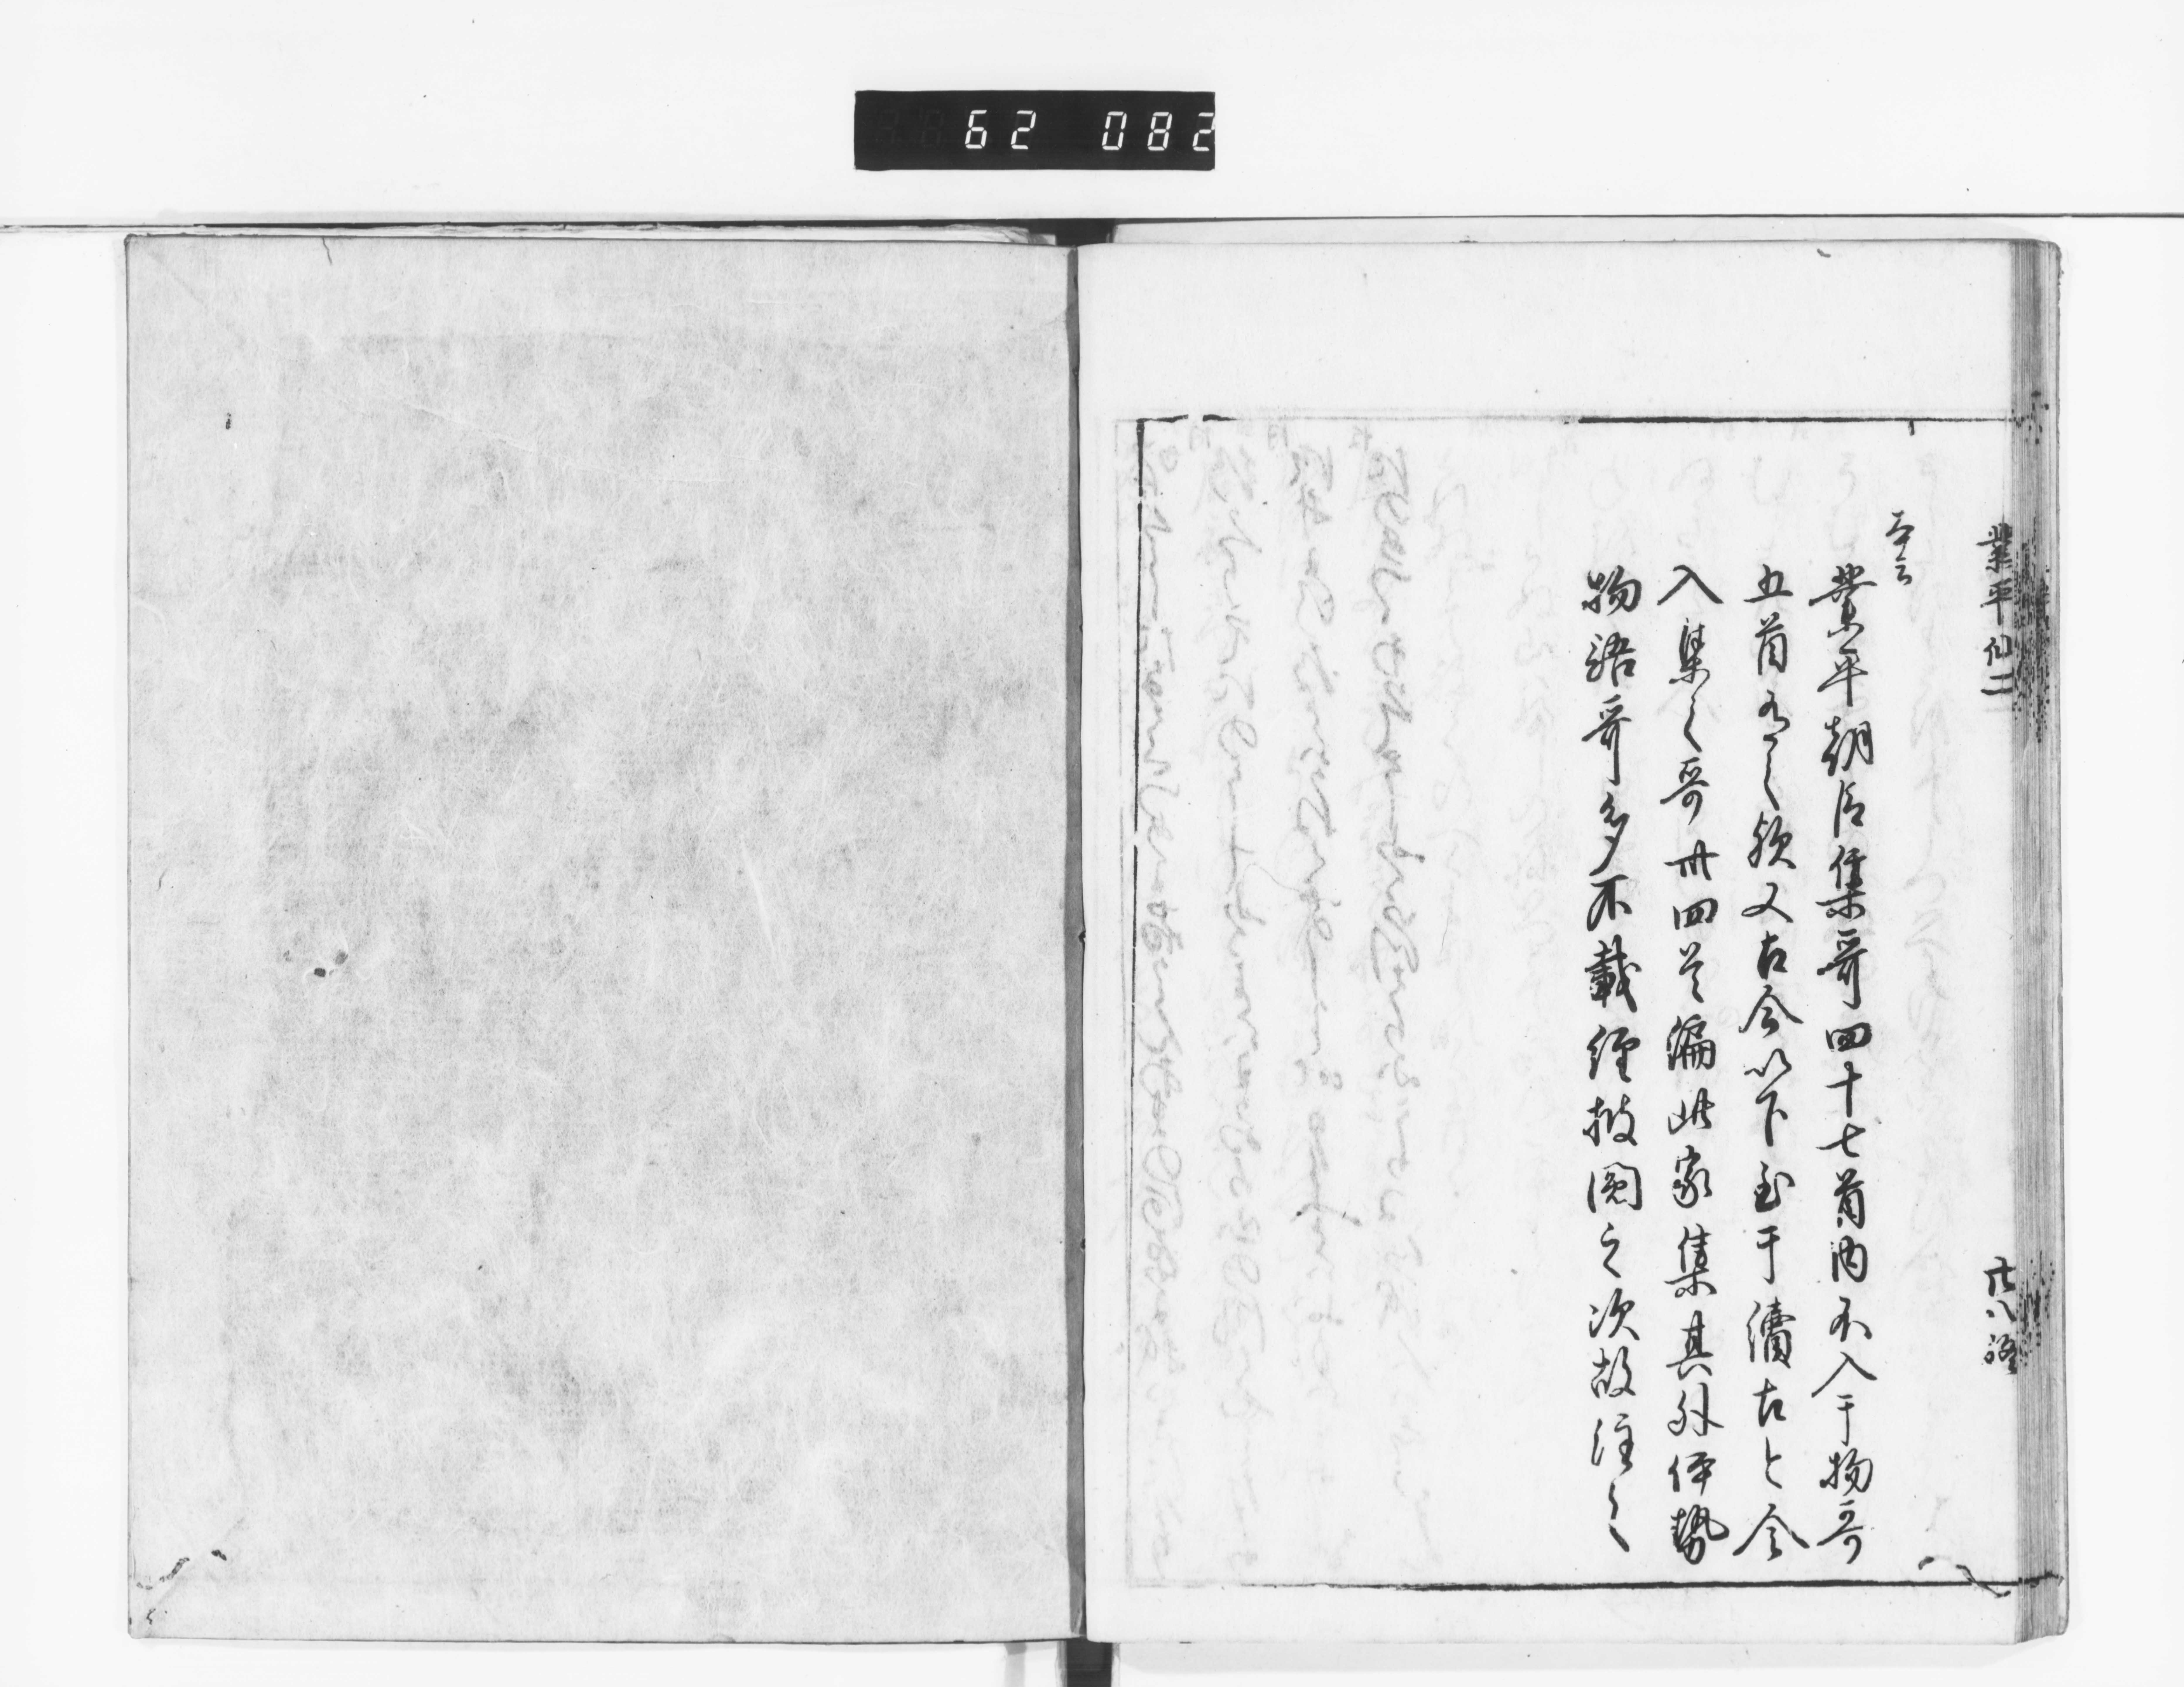 62 082
業平仙二
廿八終
本云
業平朝臣集哥四十七首内不入于物哥
五首有之歟又古今以下至于續古今
入集之哥卅四首漏此家集其外伊勢
物語哥多不載經披閲之次故注之